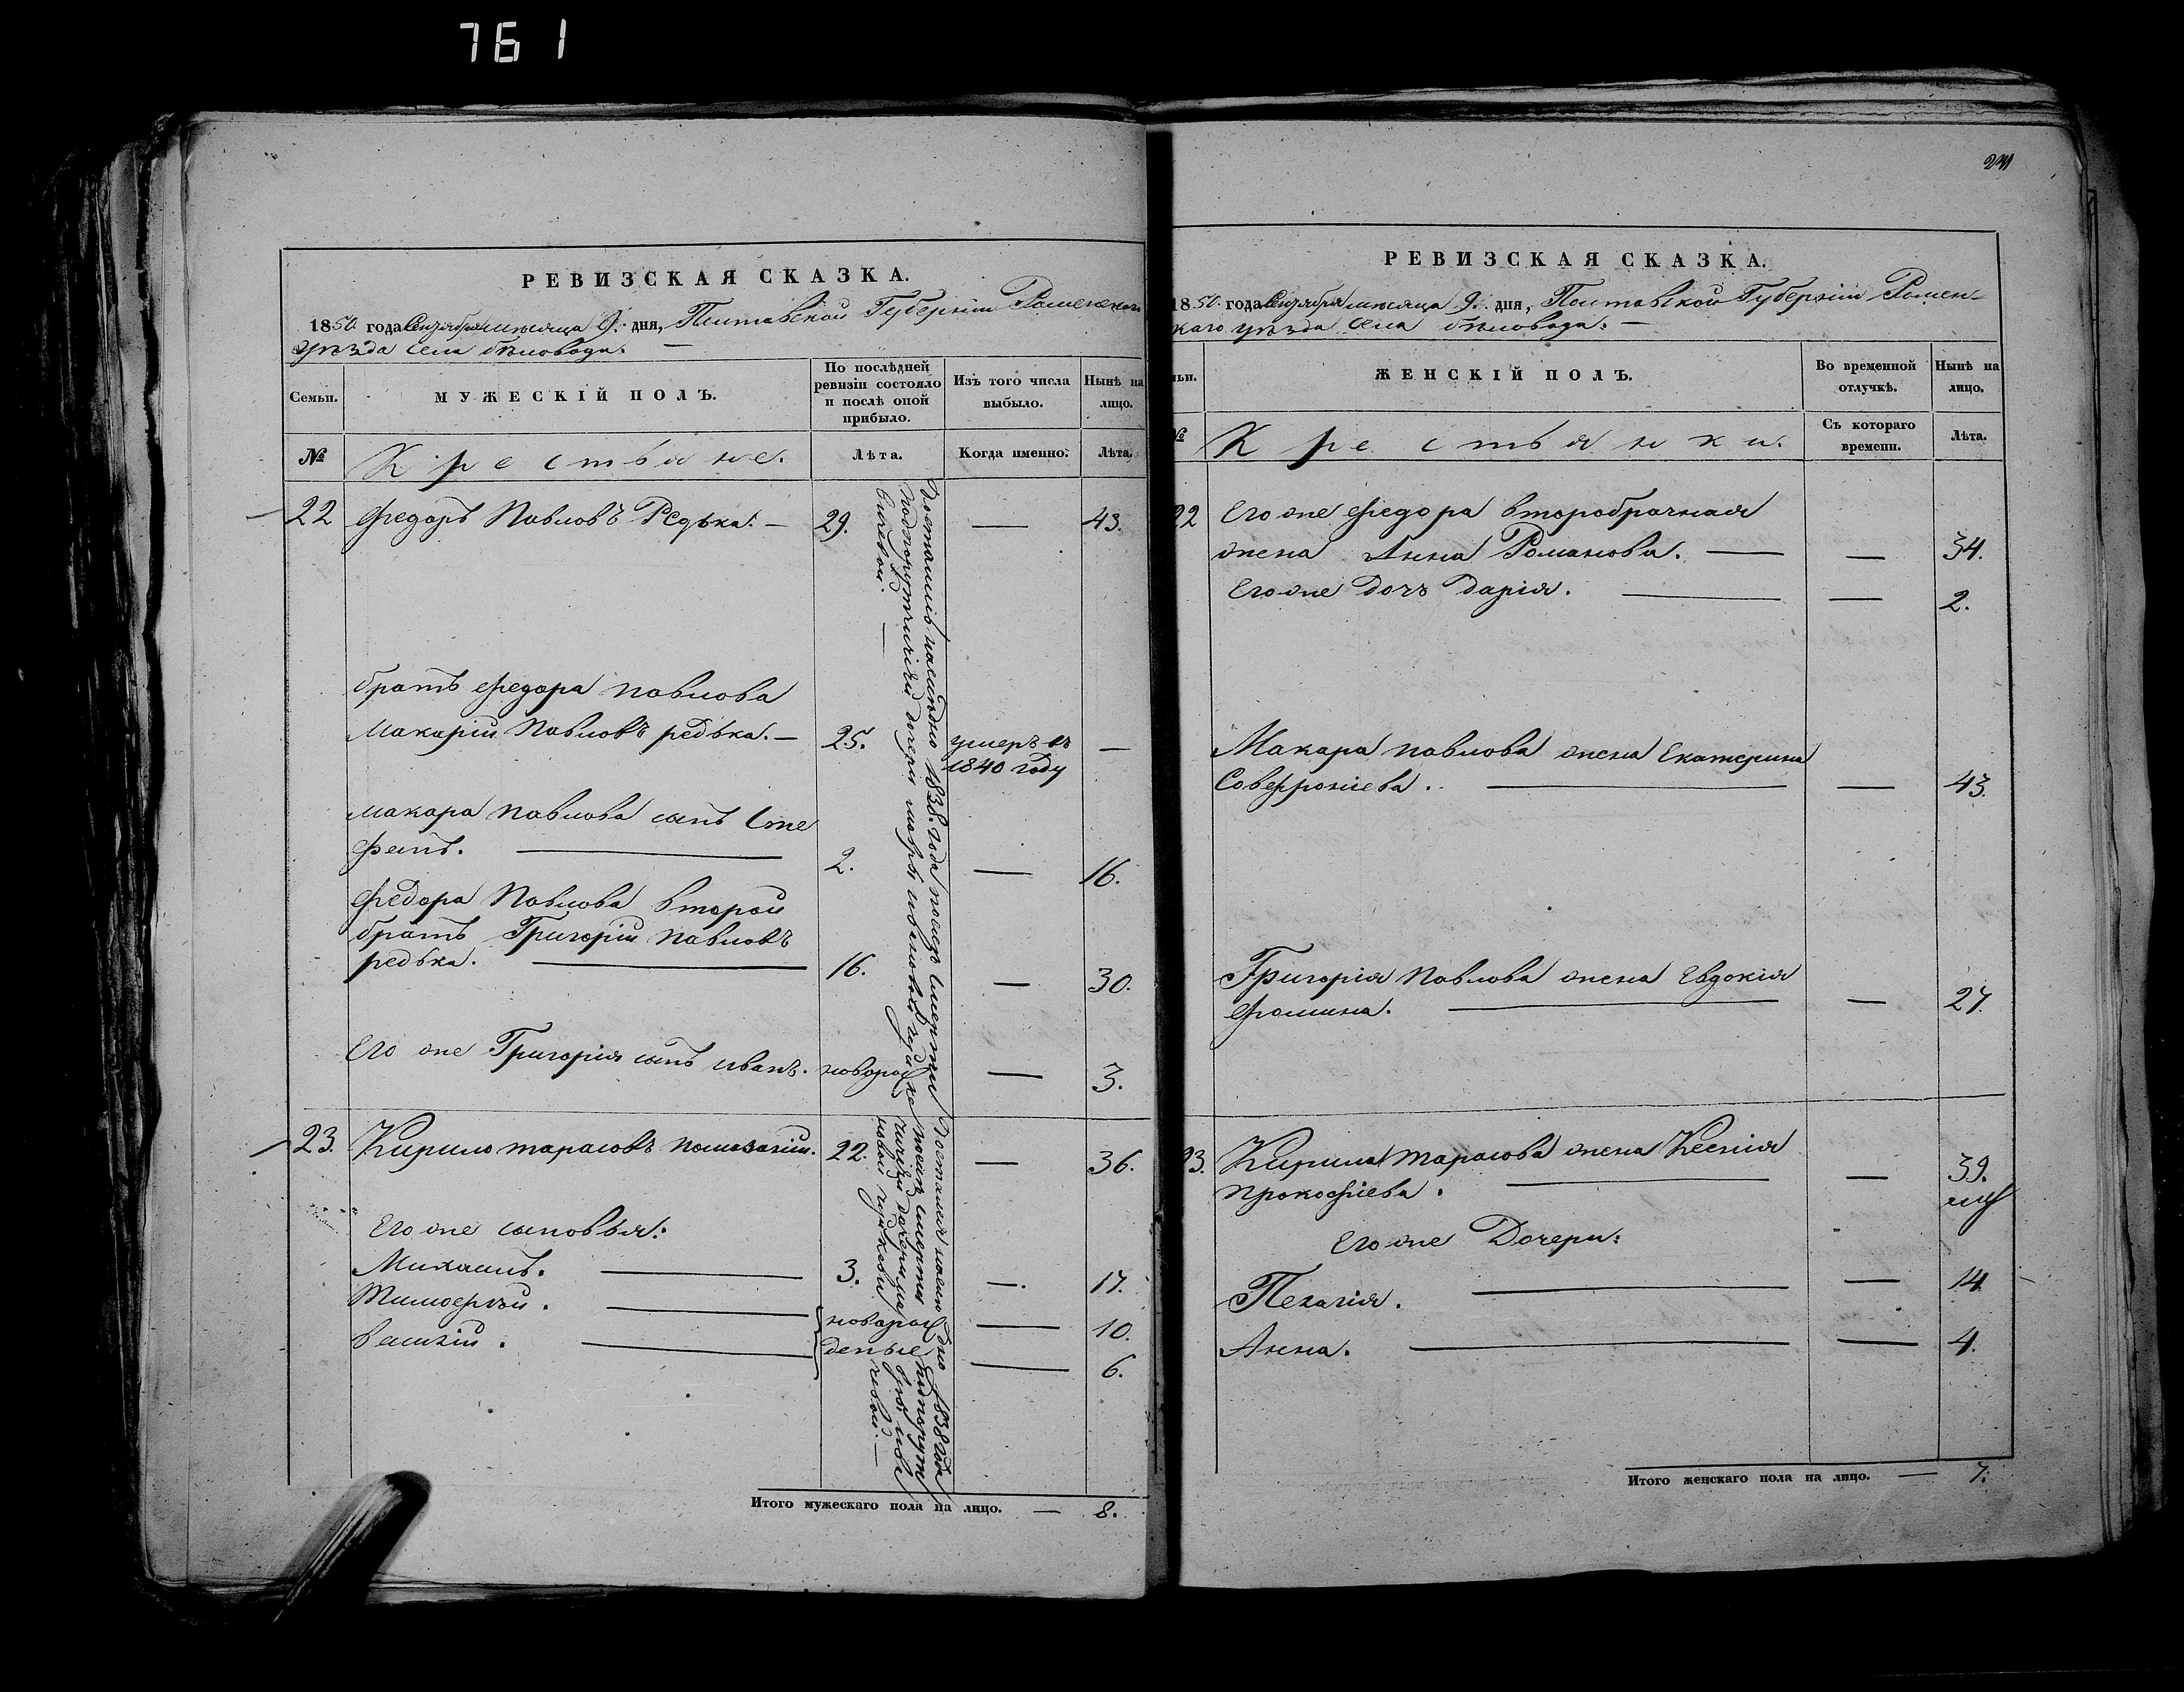 761
РЕВИЗСКАЯ СКАЗКА.
1850 года Сентября месяца 9. дня, Полтавской Губернии Роменскаго
уезда села беловода. —
Семьи.
МУЖЕСКІЙ ПОЛЪ.
По послѣдней ревизіи состояло и послѣ оной прибыло.
Изъ того числа выбыло.
Нынѣ на лицо.
№
Крестьяне.
Лѣта.
Когда именно.
Лѣта.
22
Федоръ Павловъ Редька. —
29.
—
43.
Достались по наследію 1838. года после смерти
подпорутчицы дочери мавры
братъ Федора Павлова
Макарій Павловъ редька. —
25.
умеръ въ
1840 году
—
макара Павлова сынъ Сте
фанъ. —
2.
—
16.
Федора Павлова второй
братъ Григорій Павловъ
редька. —
16.
—
30.
Его же Григорія сынъ иванъ.
новорож
—
3.
23.
Кирило тарасовъ
22.
—
36.
1838 года
после смерти
Его же сыновья:
Михаилъ. —
3.
—
17.
Тимофей. —
новорож
—
10.
василій. —
деные
—
6.
Итого мужескаго пола на лицо. — 8.
241
РЕВИЗСКАЯ СКАЗКА.
1850 года Сентября месяца 9. дня, Полтавской Губерніи Ромен-
скаго уезда села беловода. —
ьи.
ЖЕНСКІЙ ПОЛЪ.
Во временной отлучкѣ.
Нынѣ на лицо.
№
Крестьянки.
Съ котораго времени.
Лѣта.
22
Его же Федора второбрачная
жена Анна Романова. —
—
34.
Его же дочь дарія. —
—
2.
Макара павлова жена Екатерина
Соверроніева. —
—
43.
Григорія Павлова жена Евдокія
Фомина. —
—
27.
23.
Кирила Тарасова жена Ксенія
Прокофіева. —
—
39.
Его же Дочери:
Пелагія. —
—
14
Анна. —
—
4.
Итого женскаго пола на лицо. — 7.